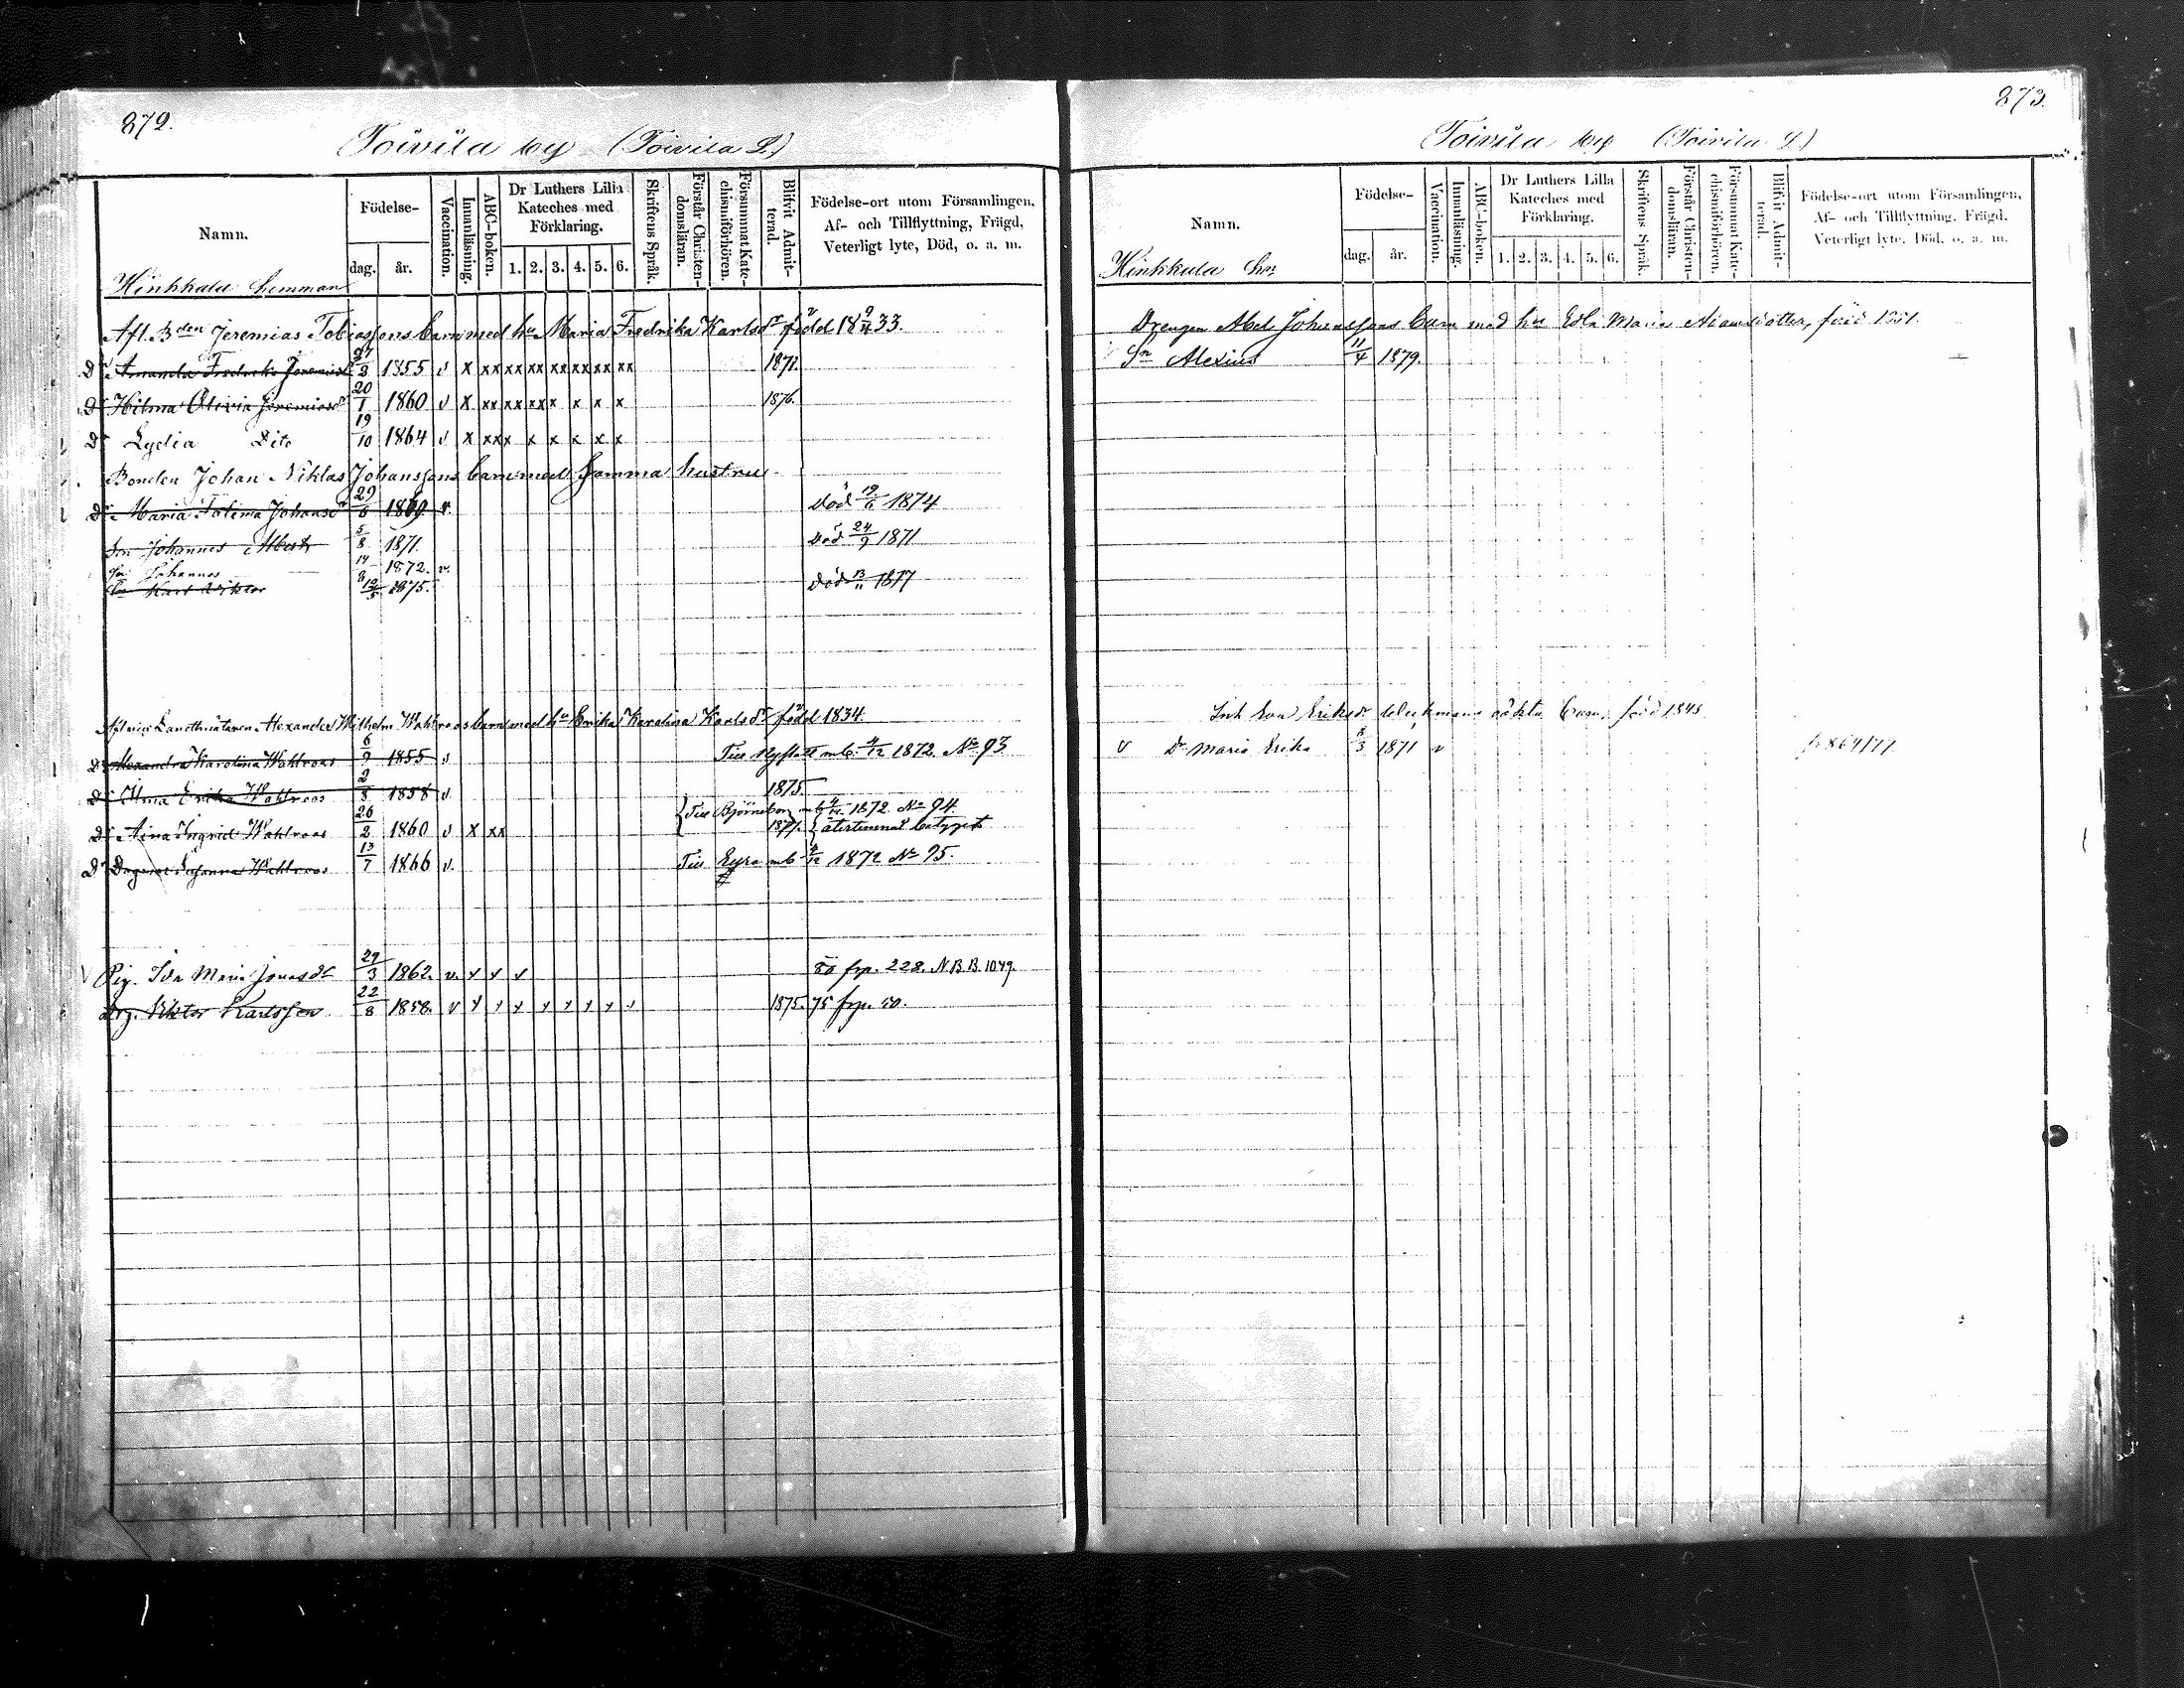 872.
Toivila by (Toivila L.)
Namn.
Födelse-
dag.
år.
Vaccination.
Innanläsning.
ABC-boken.
Dr Luthers Lilla
Kateches med
Förklaring.
1. 2. 3. 4. 5. 6.
Skriftens Språk.
Förstår Christen-
domsläran.
Försummat Kate-
chismiförhören.
Blifvit Admit-
terad.
Födelse-ort utom Församlingen,
Af- och Tillflyttning, Frägd,
Veterligt lyte, Död, o. a. m.
Hinkkala hemman
Afl. Bden Jeremias Tobiassons barn med hu Maria Fredrika Karlsdr född 18 9/11 33.
Dr Amanda Fredrika Jeremiasdr 27/3 1855 v x xx xx xx xx xx xx xx 1871.
Dr Hilma Olivia Jeremiasdr 20/1 1860 v x xx xx xx x x x x 1876.
Dr Lydia Dito 19/10 1864 v x xx x x x x x x
Bonden Johan Niklas Johanssons barn med samma hustru
Dr Maria Johansdr 29/6 1869 v. död 19/6 1874
Son Johannes Albert 5/8 1871. död 24/9 1871
Son Johannes 14/8 1872. v.
Son Karl Viktor 12/5 1875. död 13/11 1877
Afl. vice Landtmätaren Alexander Wilhelm Wahlroos barn med hu Erika Karolina Karlsdr född 1834.
Dr Alexandra Karolina Wahlroos 6/9 1855 v Till Nystad mb 4/12 1872. No 93
Dr Alma Erika Wahlroos 2/8 1858 v. 1875.
{Till Björneborg mb 4/12 1872. No 94.
Dr Aina Ingrid Wahlroos 26/2 1860 v x xx 1877. återlemnat betyget
Dr Dagmar Johanna Wahlroos 13/7 1866 v. Till Eura mb 4/12 1872 No 95.
Pig. Ida Maria Jonasdr 29/3 1862. v. x x x 80 frp. 228. N B B. 1049.
Drg. Viktor Karlsson 22/8 1858. v x x x x x x x x 1875. 75 frp. 50.
873.
Toivila by (Toivila L.)
Namn.
Födelse-
dag.
år.
Vaccination.
Innanläsning.
ABC-boken.
Dr Luthers Lilla
Kateches med
Förklaring.
1. 2. 3. 4. 5. 6.
Skriftens Språk.
Förstår Christen-
domsläran.
Försummat Kate-
chismiförhören.
Blifvit Admit-
terad.
Födelse-ort utom Församlingen,
Af- och Tillflyttning, Frägd,
Veterligt lyte, Död, o. a. m.
Hinkkala hn
Drengen Abel Johanssons barn med hu Edla Maria Adamsdotter, född 1851.
Sn Alexius 11/4 1879.
Inh Eva Eriksdr oäkta barn, född 1843
v Dr Maria Erika 8/3 1871 v p 864/77